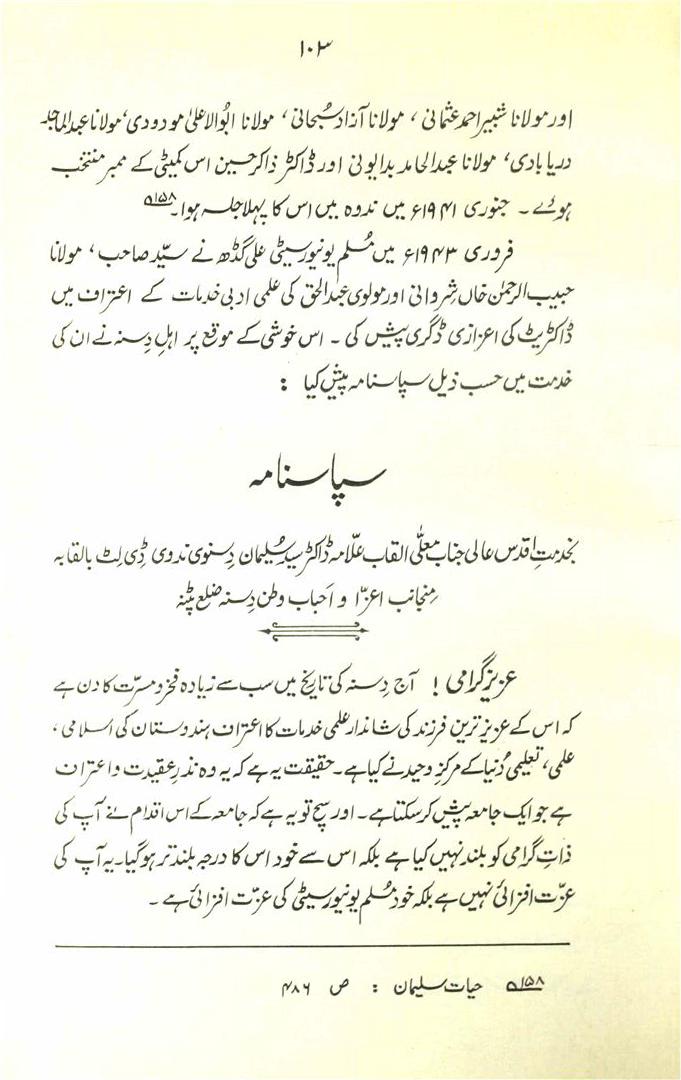 ۱۰۳
اور مولانا شبیر احمد عثمانی ، مولانا آزاد سُبحانی ، مولانا ابُوالاعلیٰ مودودی ، مولانا عبدالماجد
دریابادی ، مولانا عبدالحامد بدایونی اور ڈاکٹر ذاکر حسین اس کمیٹی کے ممبر منتخب
ہوئے ۔ جنوری ۱۹۴۱ء میں ندوہ میں اس کا پہلا جلسہ ہوا ۔ ۱۵۸ھ
فروری ۱۹۴۳ء میں مُسلم یونیورسیٹی علی گڈھ نے سیّد صاحب ، مولانا
حبیب الرحمٰن خاں شِروانی اور مولوی عبدالحق کی علمی ادبی خدمات کے اعتراف میں
ڈاکٹریٹ کی اعزازی ڈگری پیش کی ۔ اس خوشی کے موقع پر اہلِ دِسنہ نے ان کی
خدمت میں حسب ذیل سپاسنامہ پیش کیا :
سپاسنامہ
بخدمتِ اقدس عالی جناب معلّٰی القاب علّامہ ڈاکٹر سید سُلیمان دِسنوی ندوی ڈی لِٹ بالقابہ
مِنجانب اعزّا و اَحباب وطن دِسنہ ضلع پٹنہ
عزیز گرامی ! آج دِسنہ کی تاریخ میں سب سے زیادہ فخر و مسرّت کا دن ہے
کہ اس کے عزیز ترین فرزند کی شاندار علمی خدمات کا اعتراف ہندوستان کی اسلامی ،
علمی ، تعلیمی دُنیا کے مرکزِ وحید نے کیا ہے ۔ حقیقت یہ ہے کہ یہ وہ نذرِ عقیدت و اعتراف
ہے جو ایک جامعہ پیش کر سکتا ہے ۔ اور سچ تو یہ ہے کہ جامعہ کے اس اقدام نے آپ کی
ذاتِ گرامی کو بلند نہیں کیا ہے بلکہ اس سے خود اس کا درجہ بلند تر ہو گیا ۔ یہ آپ کی
عزّت افزائی نہیں ہے بلکہ خود مُسلم یونیورسیٹی کی عزّت افزائی ہے ۔
۱۵۸ھ حیات سلیمان : ص ۴۸۶